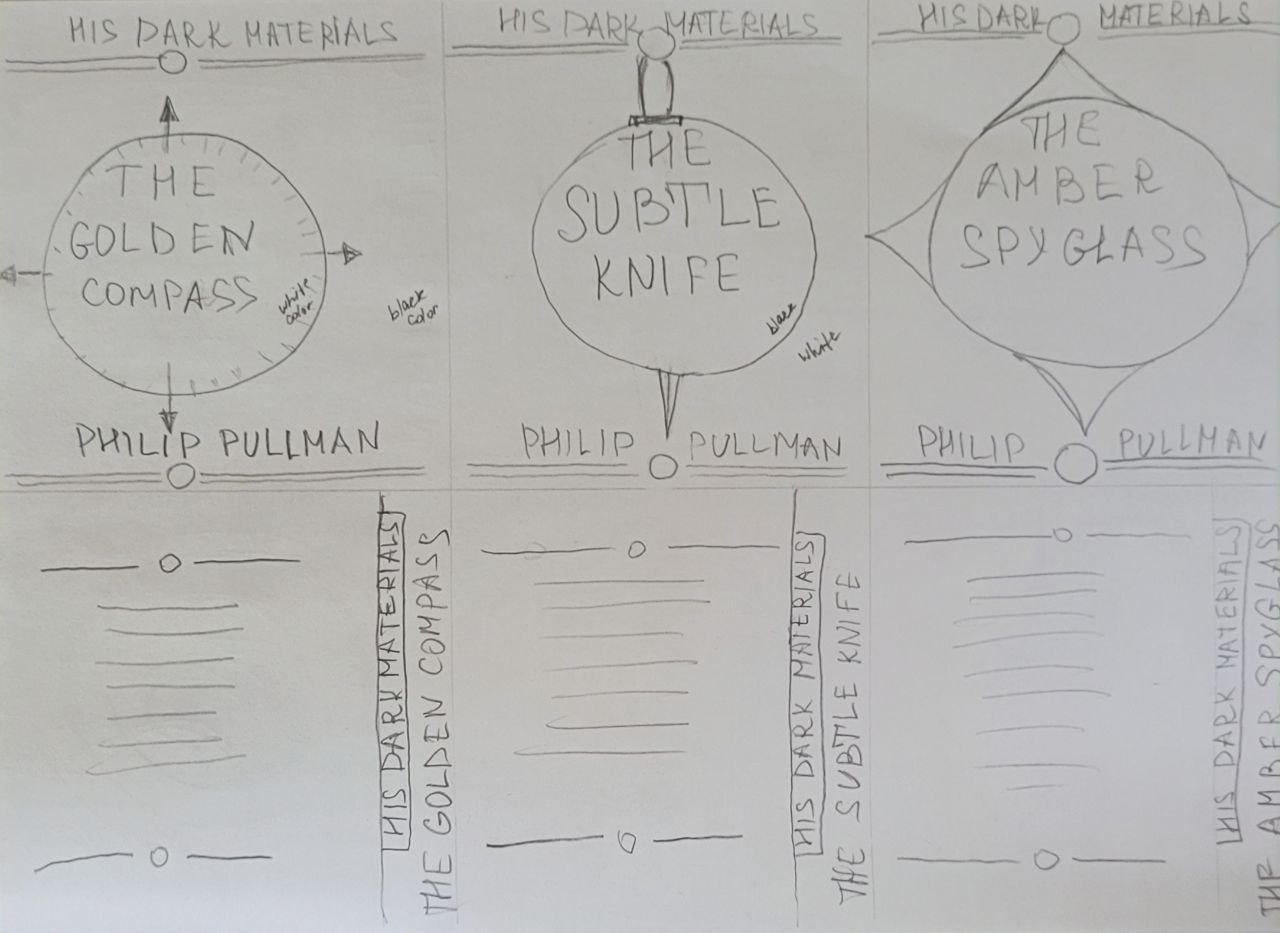 HIS DARK MATERIALS
THE
GOLDEN
COMPASS
white
color
black
color
PHILIP PULLMAN
HIS DARK MATERIALS
THE
SUBTLE
KNIFE
black
white
PHILIP PULLMAN
HIS DARK MATERIALS
THE
AMBER
SPYGLASS
PHILIP PULLMAN
HIS DARK MATERIALS
THE GOLDEN COMPASS
HIS DARK MATERIALS
THE SUBTLE KNIFE
HIS DARK MATERIALS
THE AMBER SPYGLASS